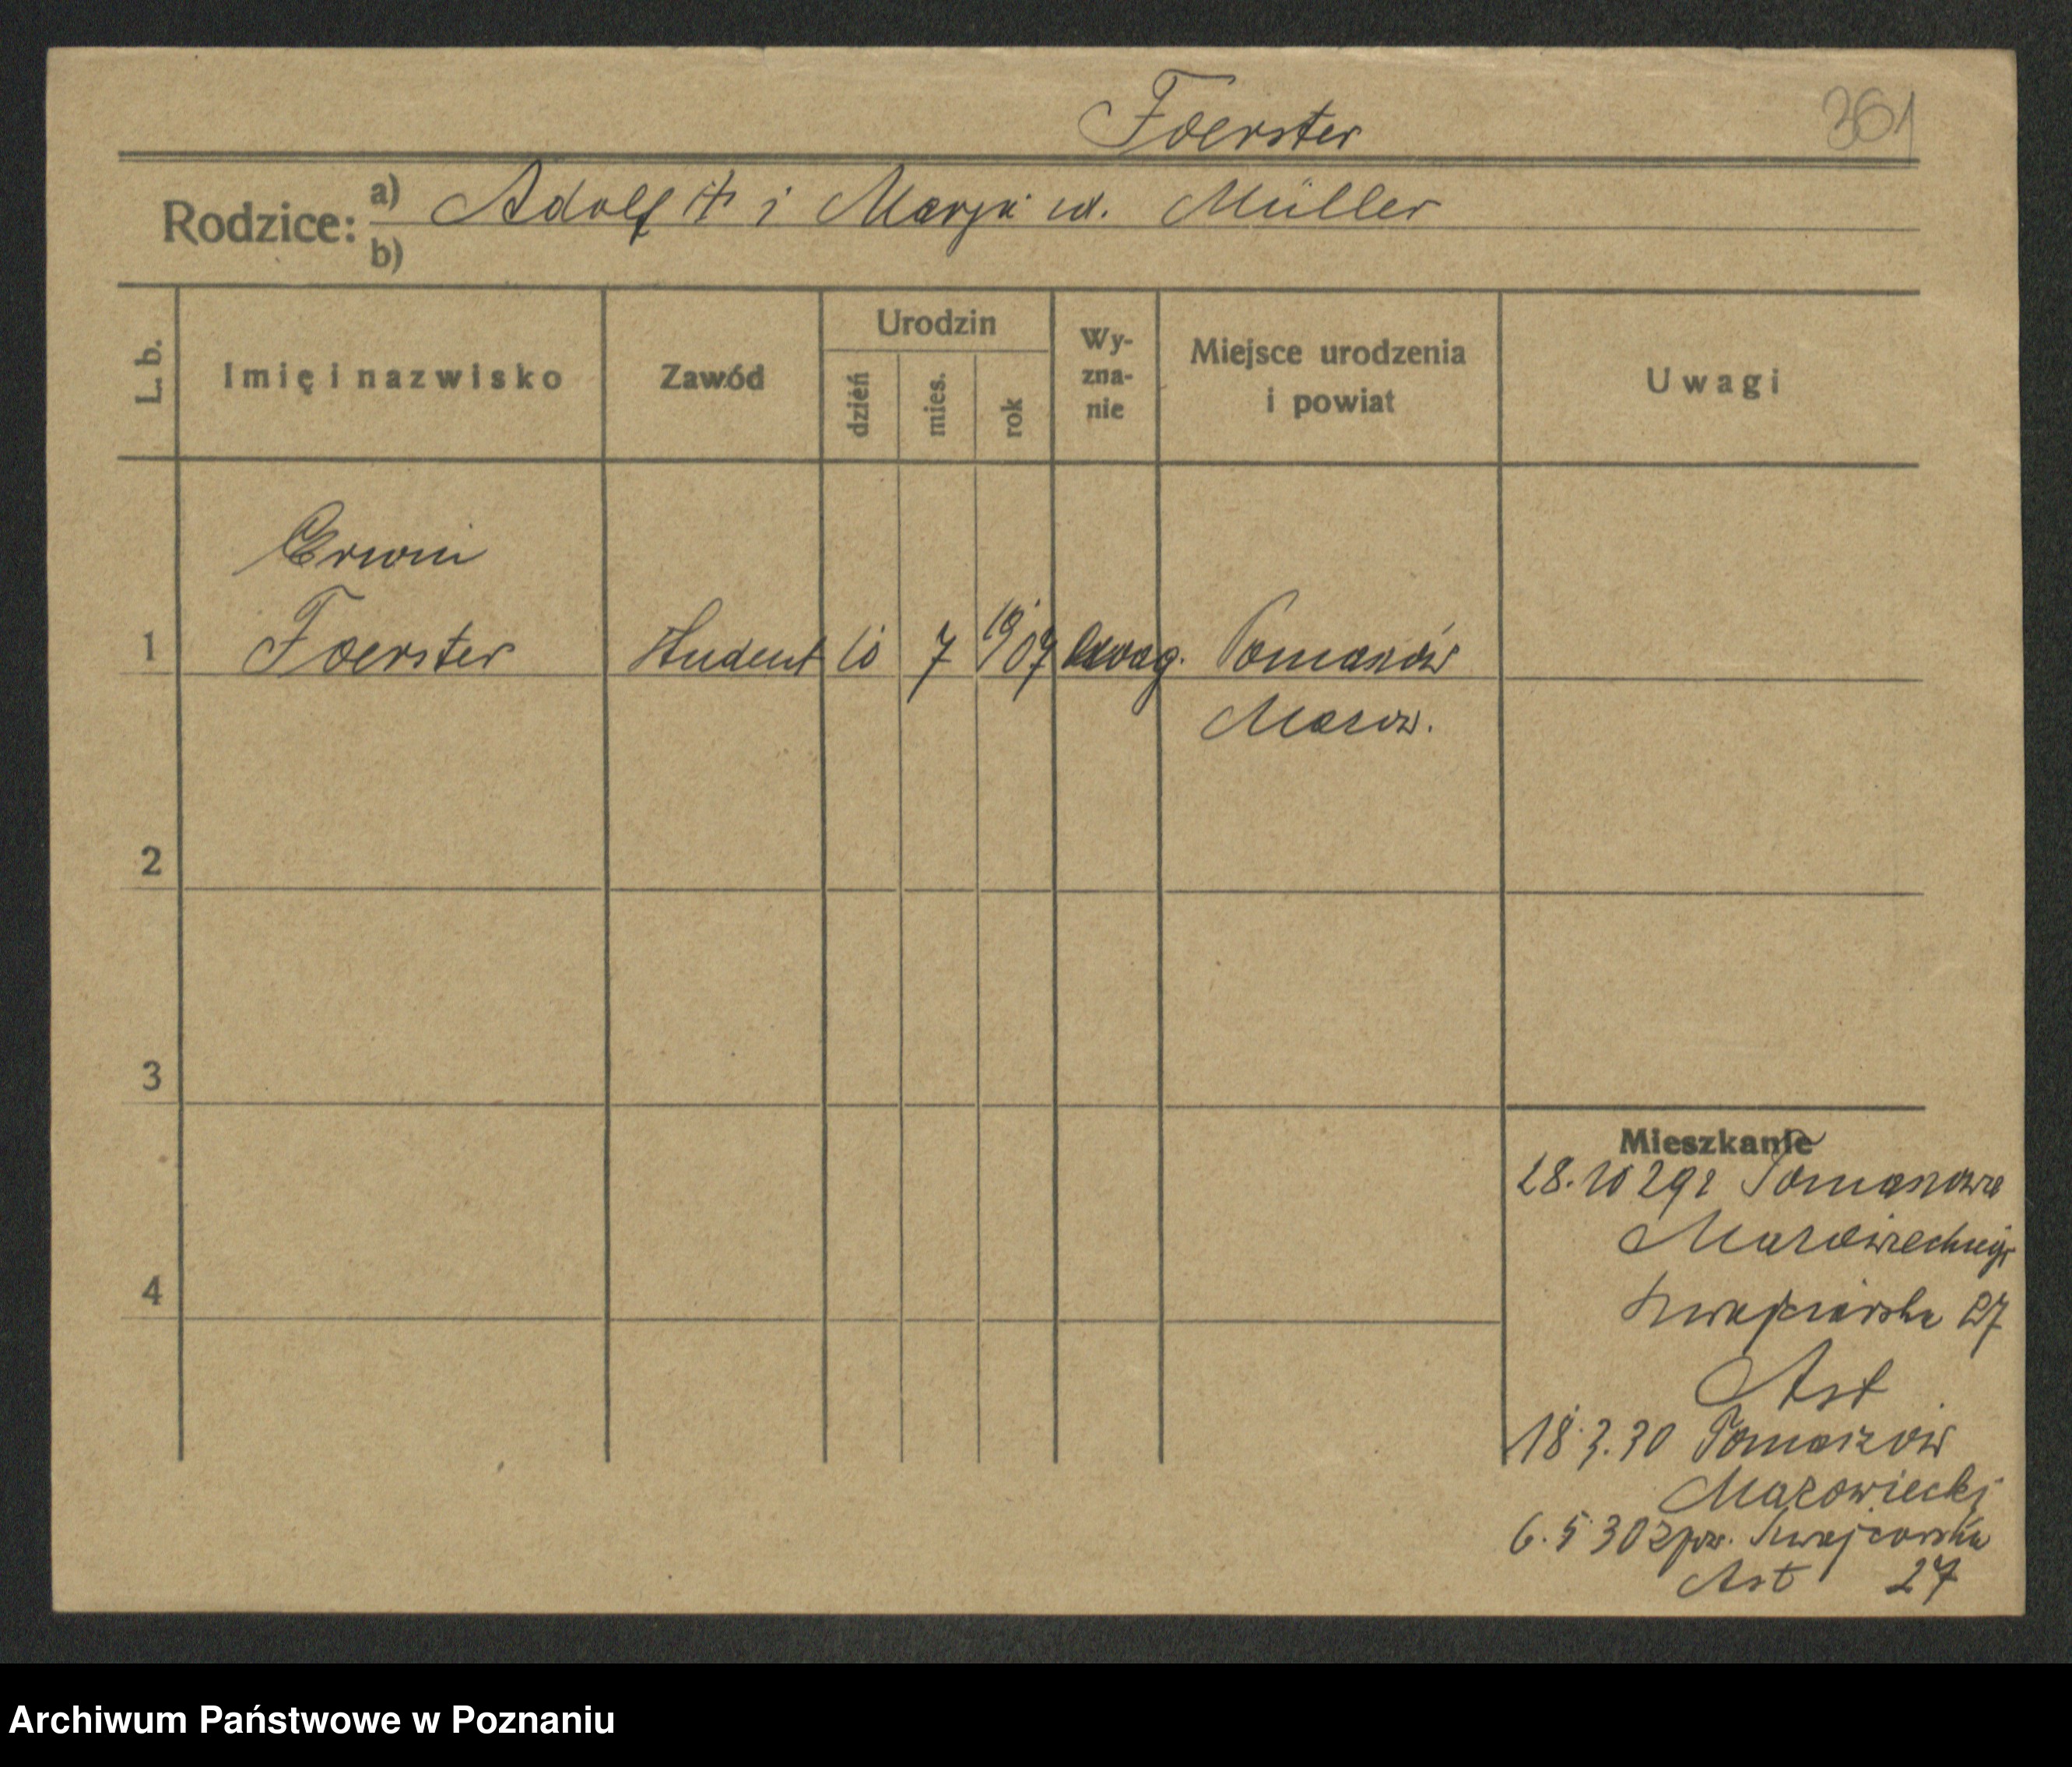 Foerster
361
Rodzice: a) Adolf i Marja ur. Müller
b)
L. b.
Imię i nazwisko
Zawód
Urodzin
dzień
mies.
rok
Wy-
zna-
nie
Miejsce urodzenia
i powiat
Uwagi
Erwin
1 Foerster Student 10 7 1907 ewag. Tomaszów
Mazow.
2
3
4
Mieszkanie
28.10 29 z Tomaszowa
Mazowieckiego
27
Ast
18.3.30 Tomaszów
Mazowiecki
6.5 30 z pow. Szwajcarska
Ast 27
Archiwum Państwowe w Poznaniu